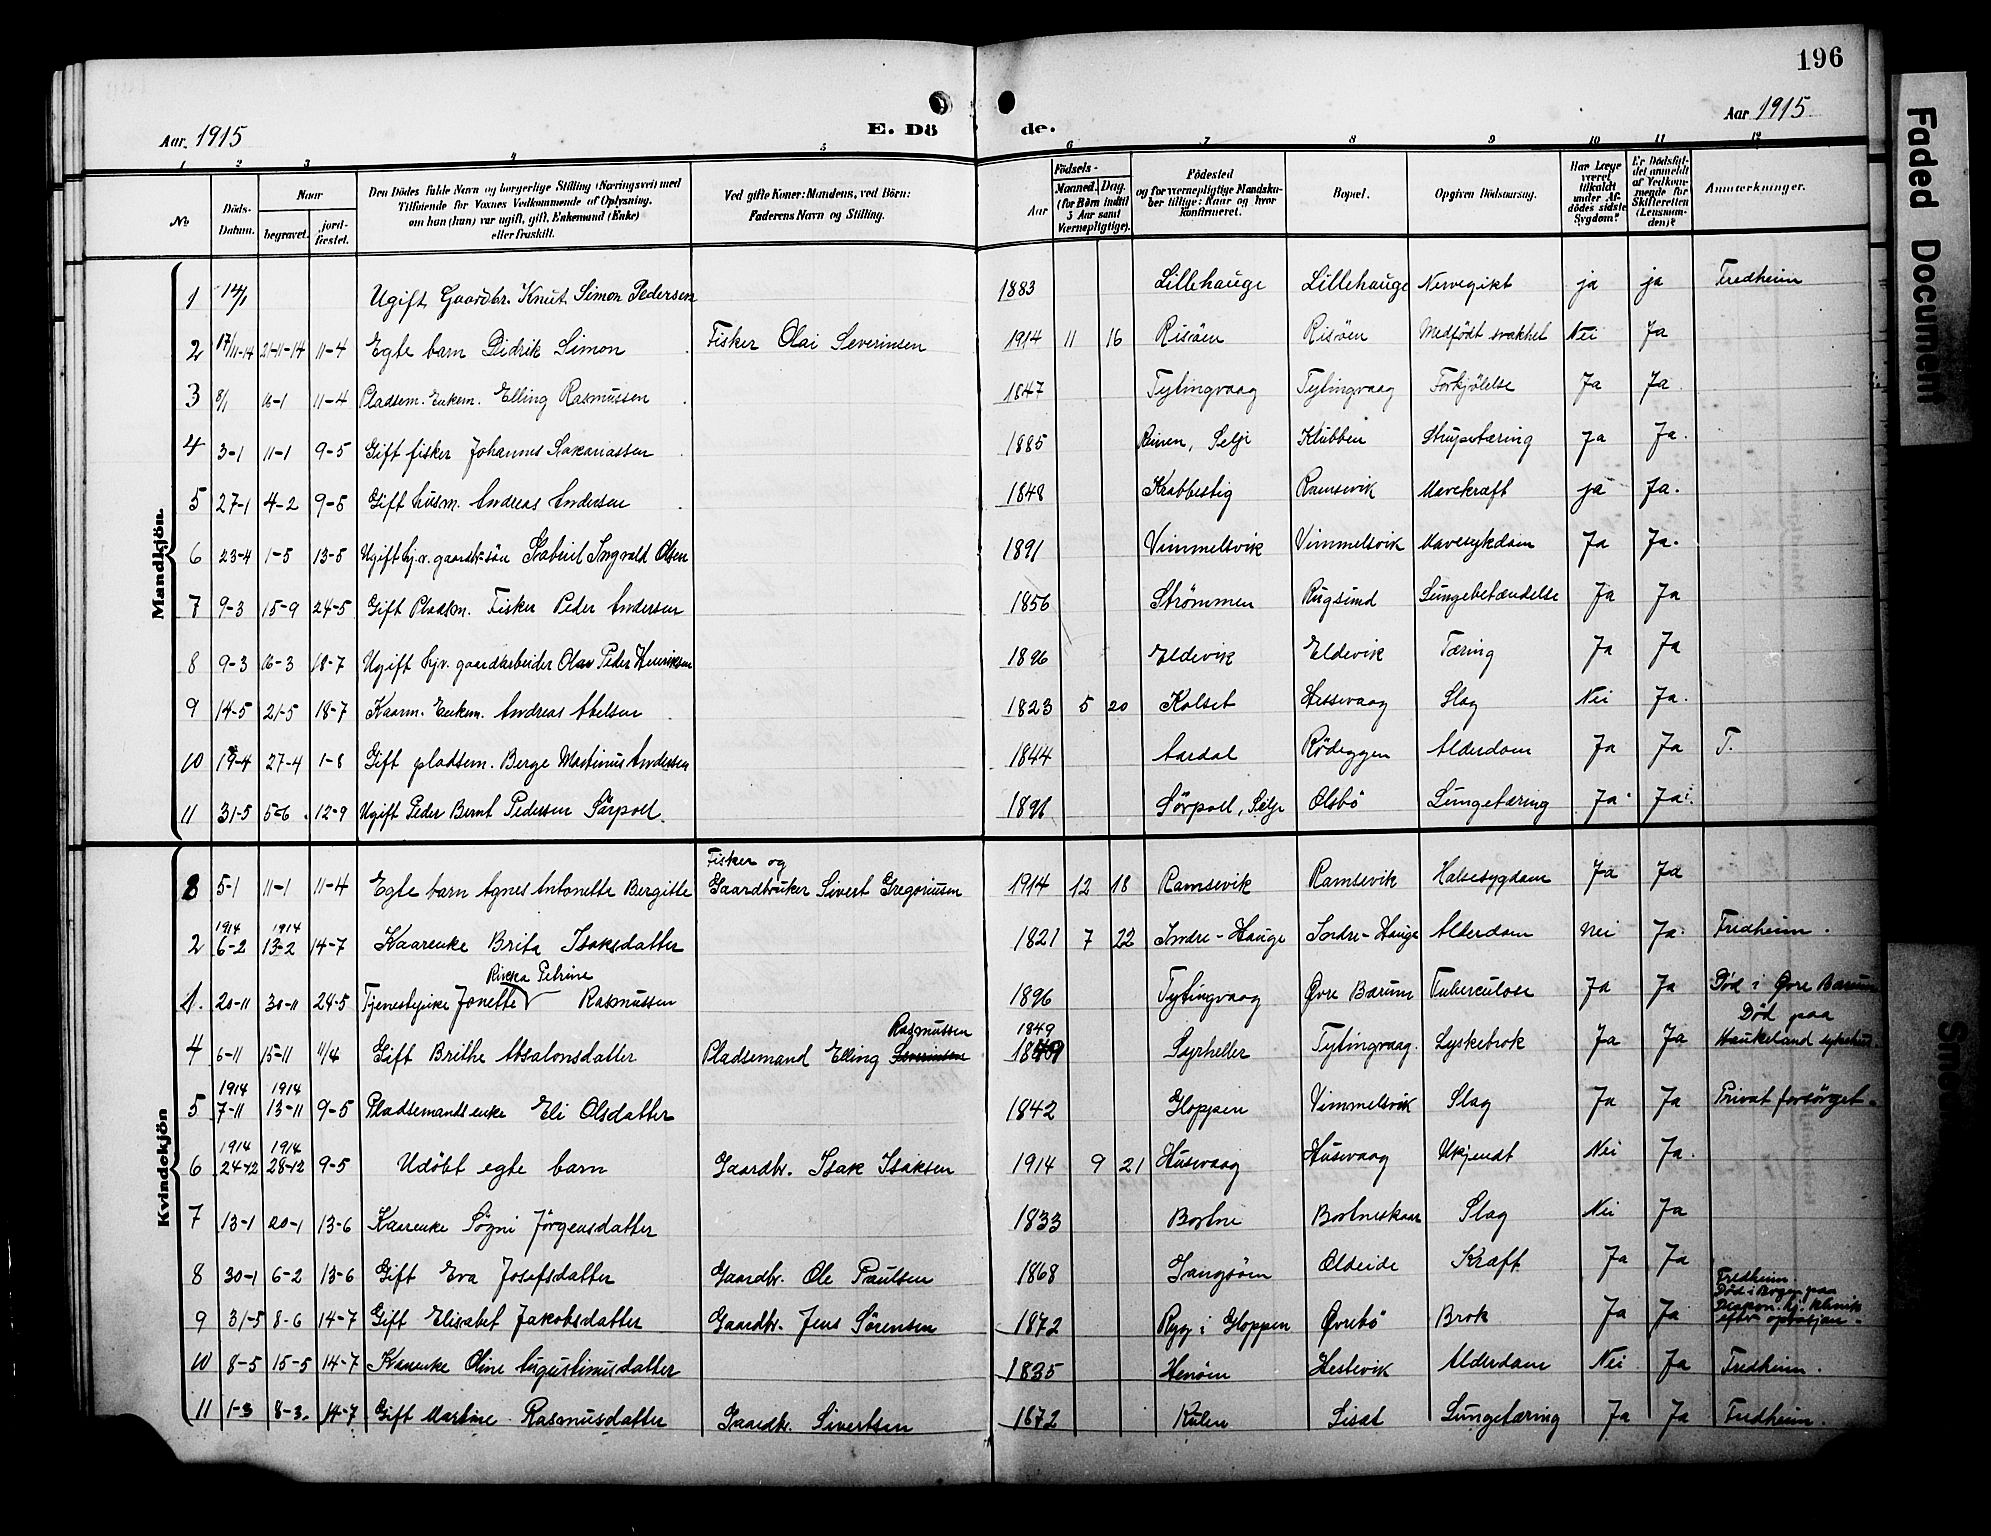 196
Aar 1915
E. Dö de.
Aar 1915
1 2 3 4 5 6 7 8 9 10 11 12
No
Döds-Datum.
Naar
begravet.
jord-fæstet.
Den Dödes fulde Navn og borgerlige Stilling (Næringsvei) med
Tilföiende for Voxnes Vedkommende af Oplysning,
om han (hun) var ugift, gift, Enkemand (Enke)
eller fraskilt.
Ved gifte Koner: Mandens, ved Börn:
Faderens Navn og Stilling.
Födsels-
Aar
Maaned. Dag.
(for Börn indtil
5 Aar samt
Værnepligtige).
Födested
og for værnepligtige Mandska-
ber tillige: Naar og hvor
konfirmeret.
Bopæl.
Opgiven Dödsaarsag.
Har Læge
været
tilkaldt
under Af-
dödes sidste
Sygdom?
Er Dödsfal-
det anmeldt
af Vedkom-
mende for
Skifteretten
(Lensman-
den)?
Anmærkninger.
Mandkjön.
1 12/1 Ugift Gaardbr. Knut Simon Pedersen 1883 Lillehauge Lillehauge Nervegikt ja ja Fredheim
2 17/11-14 21-11-14 11-4 Egte barn Didrik Simon Fisker Olai Severinsen 1914 11 16 Risöen Risöen Medfödt svakhet Nei Ja
3 8/1 16-1 11-4 Pladsm. Enkem. Elling Rasmussen 1847 Tytingvaag Tytingvaag Forkjölelse Ja Ja
4 3-1 11-1 9-5 Gift fisker Johannes Sakariassen 1885 Selje Klubben Strupetæring Ja Ja.
5 27-1 4-2 9-5 Gift husm. Andreas Andersen 1848 Krabbestig Ramsevik Mavekræft ja Ja.
6 23-4 1-5 13-5 Ugift hj.v. gaardbr.sön Gabriel Ingvald Olsen 1891 Vimmelsvik Vimmelsvik Mavesykdom Ja Ja.
7 9-3 15-9 24-5 Gift Pladsm. Fisker Peder Andersen 1856 Strømmen Rugsund Lungebetændelse Ja Ja
8 9-3 16-3 18-7 Ugift hjv. gaardarbeider Olav Peder Henriksen 1896 Eldevik Eldevik Tæring Ja Ja
9 14-5 21-5 18-7 Kaarm. Enkem. Andreas Abelsen 1823 5 20 Kolset Hessevaag Slag Nei Ja.
10 19-4 27-4 1-8 Gift pladsm. Berge Martinus Andersen 1844 Aardal Rødeggen Alderdom Ja Ja T.
11 31-5 5-6 12-9 Ugift Peder Bernt Pedersen Sörpoll. 1891 Sörpoll, Selje Olsbö Lungetæring Ja Ja.
Kvindekjön
Fisker og
5-1 11-1 11-4 Egte barn Agnes Antonette Bergitte Gaardbruker Sivert Gregoriusen 1914 12 18 Ramsevik Ramsevik Halsesygdom Ja Ja
1914 1914
2 6-2 13-2 14-7 Kaarenke Brita Isaksdatter 1821 7 22 Indre-Hauge Indre-Hauge Alderdom Nei Ja. Fridheim.
Rikka Petrine
1. 20-11 30-11 24-5 Tjenestepike Jonette Rasmussen 1896 Tytingvaag Øvre Bærum Tuberculose Ja Ja Död i Øvre Bærum
Rasmussen 1849 Död paa
4 6-11 15-11 11/4 Gift Brithe Absalonsdatter Pladsemand Elling Severinsen Syrheller Tytingvaag. Lyskebrok Ja Ja Haukeland sykehus.
1914 1914
5 7-11 13-11 9-5 Pladsemandsenke Eli Olsdatter 1842 Gloppen Vimmelsvik Slag Ja Ja Privat forsörget.
1914 1914
6 24-12 28-12 9-5 Udöbt egte barn Gaardbr. Isak Isaksen 1914 9 21 Husevaag Husevaag Ukjendt Nei Ja.
7 13-1 20-1 13-6 Kaarenke Søgni Jörgensdatter 1833 Bortne Bortneskaar Slag Nei Ja
8 30-1 6-2 13-6 Gift Eva Josefsdatter Gaardbr. Ole Paulsen 1868 Langsöen Oldeide Kræft Ja Ja
Fredheim.
Död i Bergen paa
9 31-5 8-6 14-7 Gift Elisabet Jakobsdatter Gaardbr. Jens Sörensen 1872 Ryg i Gloppen Øvrebö Brok Ja Ja Diakon. hj. klinik
efter oprasjon.
10 8-5 15-5 14-7 Kaarenke Oline Augustinusdatter 1835 Henöen Hestevik Alderdom Nei Ja Fredheim.
11 1-3 8-3. 14-7 Gift Martine Rasmusdatter Gaardbr. Sivertsen 1872 Kulen Liset Lungetæring Ja Ja Fredheim.
Faded Document